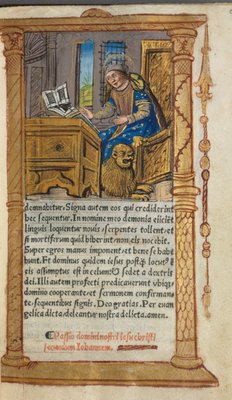 demnabitur. Signa autem eos qui crediderint
hec sequentur. In nomine meo demonia eiiciēt
linguis loquentur nouis: serpentes tollent: et
si mortiferum quid biberint: non eis nocebit.
Super egros manus imponent: et bene se habe
bunt. Et dominus quidem iesus postꝙ locutꝰ ē
eis assumptus est in celum: ⁊ sedet a dextris
dei. Illi autem profecti predicauerunt vbiqꝫ
domino cooperante: et sermonem confirman-
te: sequentibus signis. Deo gratias. Per euan
gelica dicta: deleantur nostra delicta. amen.
Passio domini nostri iesu christi
secundum Iohannem.